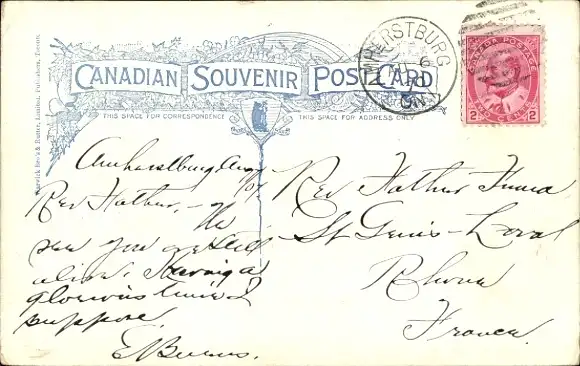 CANADIAN SOUVENIR POST CARD
THIS SPACE FOR CORRESPONDENCE
THIS SPACE FOR ADDRESS ONLY
Warwick Bro's & Rutter, Limited, Publishers, Toronto.
AMHERSTBURG
6
ONT
CANADA POSTAGE
2 CENTS 2
Amherstburg Aug
Rev Father, -
see you are still
alive. Having a
glorious time I
suppose.
E Burns.
Rev Father
St Genis-Laval
Rhone
France